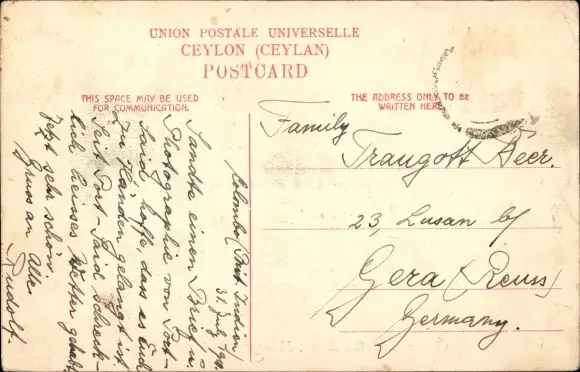 UNION POSTALE UNIVERSELLE
CEYLON (CEYLAN)
POSTCARD
THIS SPACE MAY BE USED
FOR COMMUNICATION.
THE ADDRESS ONLY TO BE
WRITTEN HERE
Colombo (Brit. Indien)
31. July
Sandte einen Brief u.
Photographie von Port-
Said, hoffe dass es Euch
zu Händen gelangt ist.
Seit Port-Said schreck-
lich heisses Wetter gehabt
Jetzt sehr schön.
Gruss an Alle
Rudolf.
Family
Traugott Heer.
23, Lusan b/
Gera (Reuss)
Germany.